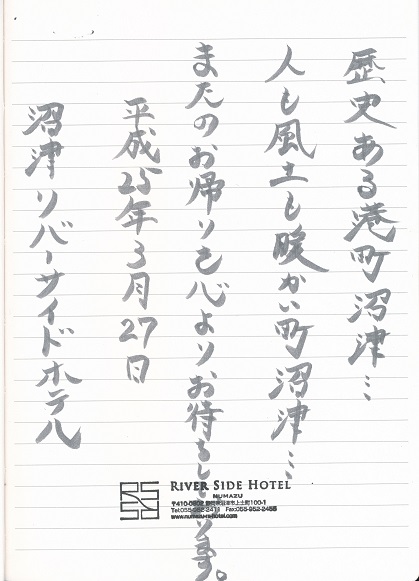 歴史ある港町沼津…
人も風土も暖かい町沼津…
またのお帰りを心よりお待ちしています。
平成25年3月27日
沼津リバーサイドホテル
RIVER SIDE HOTEL
NUMAZU
〒410-0802 静岡県沼津市上土町100-1
Tel:055-952-2411 Fax:055-952-2455
www.numazu-rs-hotel.com